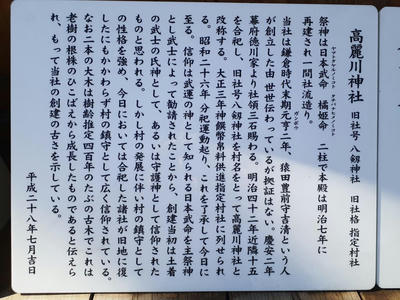 高麗川神社 旧社号 八剱神社 旧社格 指定村社
祭神は日本武命 橘姫命 二柱で本殿は明治七年に
再建され一間社流造り。
当社は鎌倉時代末期元亨二年、猿田豊前守吉清という人
が創立した由 世世伝わっているが拠証はない。慶安二年
幕府徳川家より社領三石賜わる。明治四十二年近隣十五
を合祀し、旧社号八剱神社を村名をとって高麗川神社と
改称する。大正三年神饌幣帛料供進指定村社に列せられ
る。昭和二十六年 分祀運動起り、これを了承して今日に
至る。信仰は武運の神として知られる日本武命を主祭神
とし武士によって勧請されたことから、創建当初は土着
の武士の氏神として、あるいは守護神として信仰された
ものと思われる。しかし村の発展に伴い村の鎮守として
の性格を強め、今日においては合祀した諸社が旧地に復
したにもかかわらず村の鎮守として広く信仰されている。
なお二本の大木は樹齢推定四百年のたぶの古木でこれは
老樹の根株のひこばえから成長したものであると伝えら
れ、もって当社の創建の古さを示している。
平成二十八年七月吉日